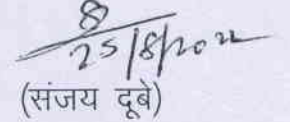 25/8/2022
(संजय दूबे)